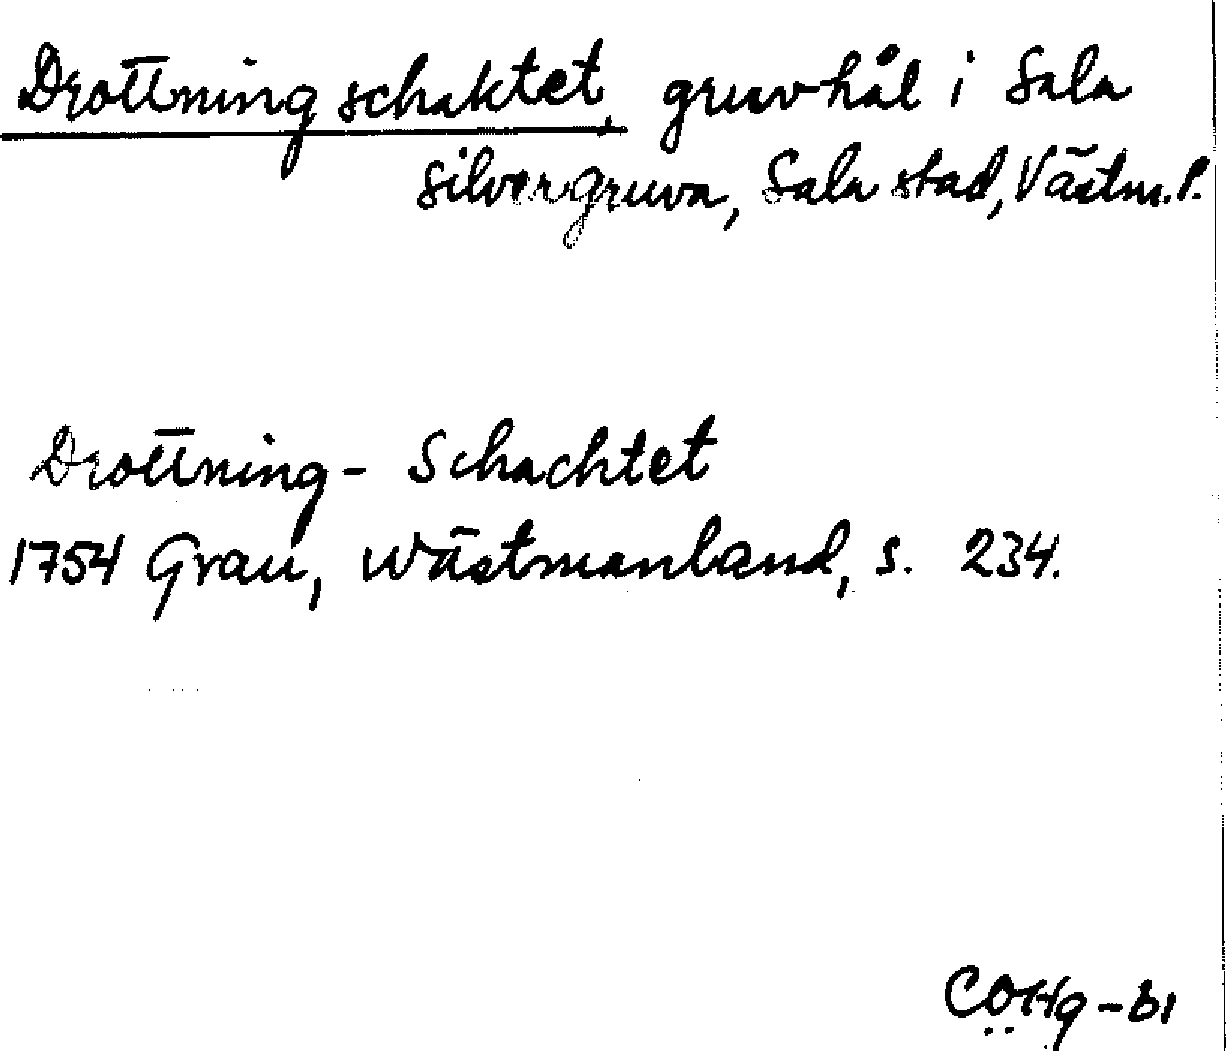 Drottningschaktet, gruvhål i Sala
Silvergruva, Sala stad, Västm.l.
Drottning-Schachtet
1754 Grau, Wästmanland, s. 234.